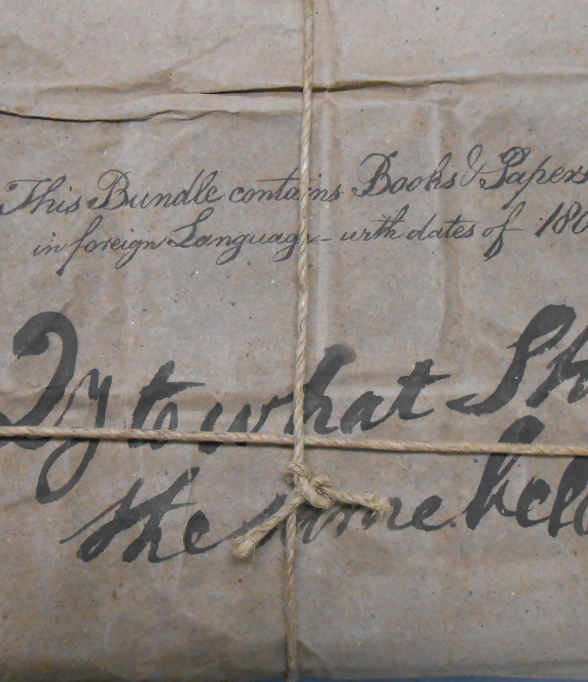 This Bundle contains Books & Papers
in foreign Language - with dates of 180
Qy to what Sh
the same bell